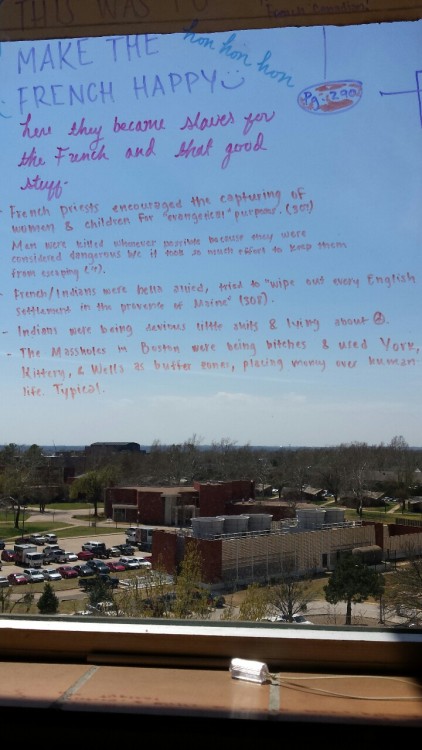 THIS WAS TO
"French Canadian"
MAKE THE
hon hon hon
FRENCH HAPPY
Pg. 290
here they became slaves for
the French and that good
stuff.
- French priests encouraged the capturing of
women & children for "evangelical" purposes. (307)
Men were killed whenever possible because they were
considered dangerous b/c it took so much effort to keep them
from escaping (?).
- French/Indians were hella allied, tried to "wipe out every English
settlement in the province of Maine" (308).
- Indians were being devious little shits & lying about
- The Massholes in Boston were being bitches & used York,
Kittery, & Wells as buffer zones, placing money over human
life. Typical.